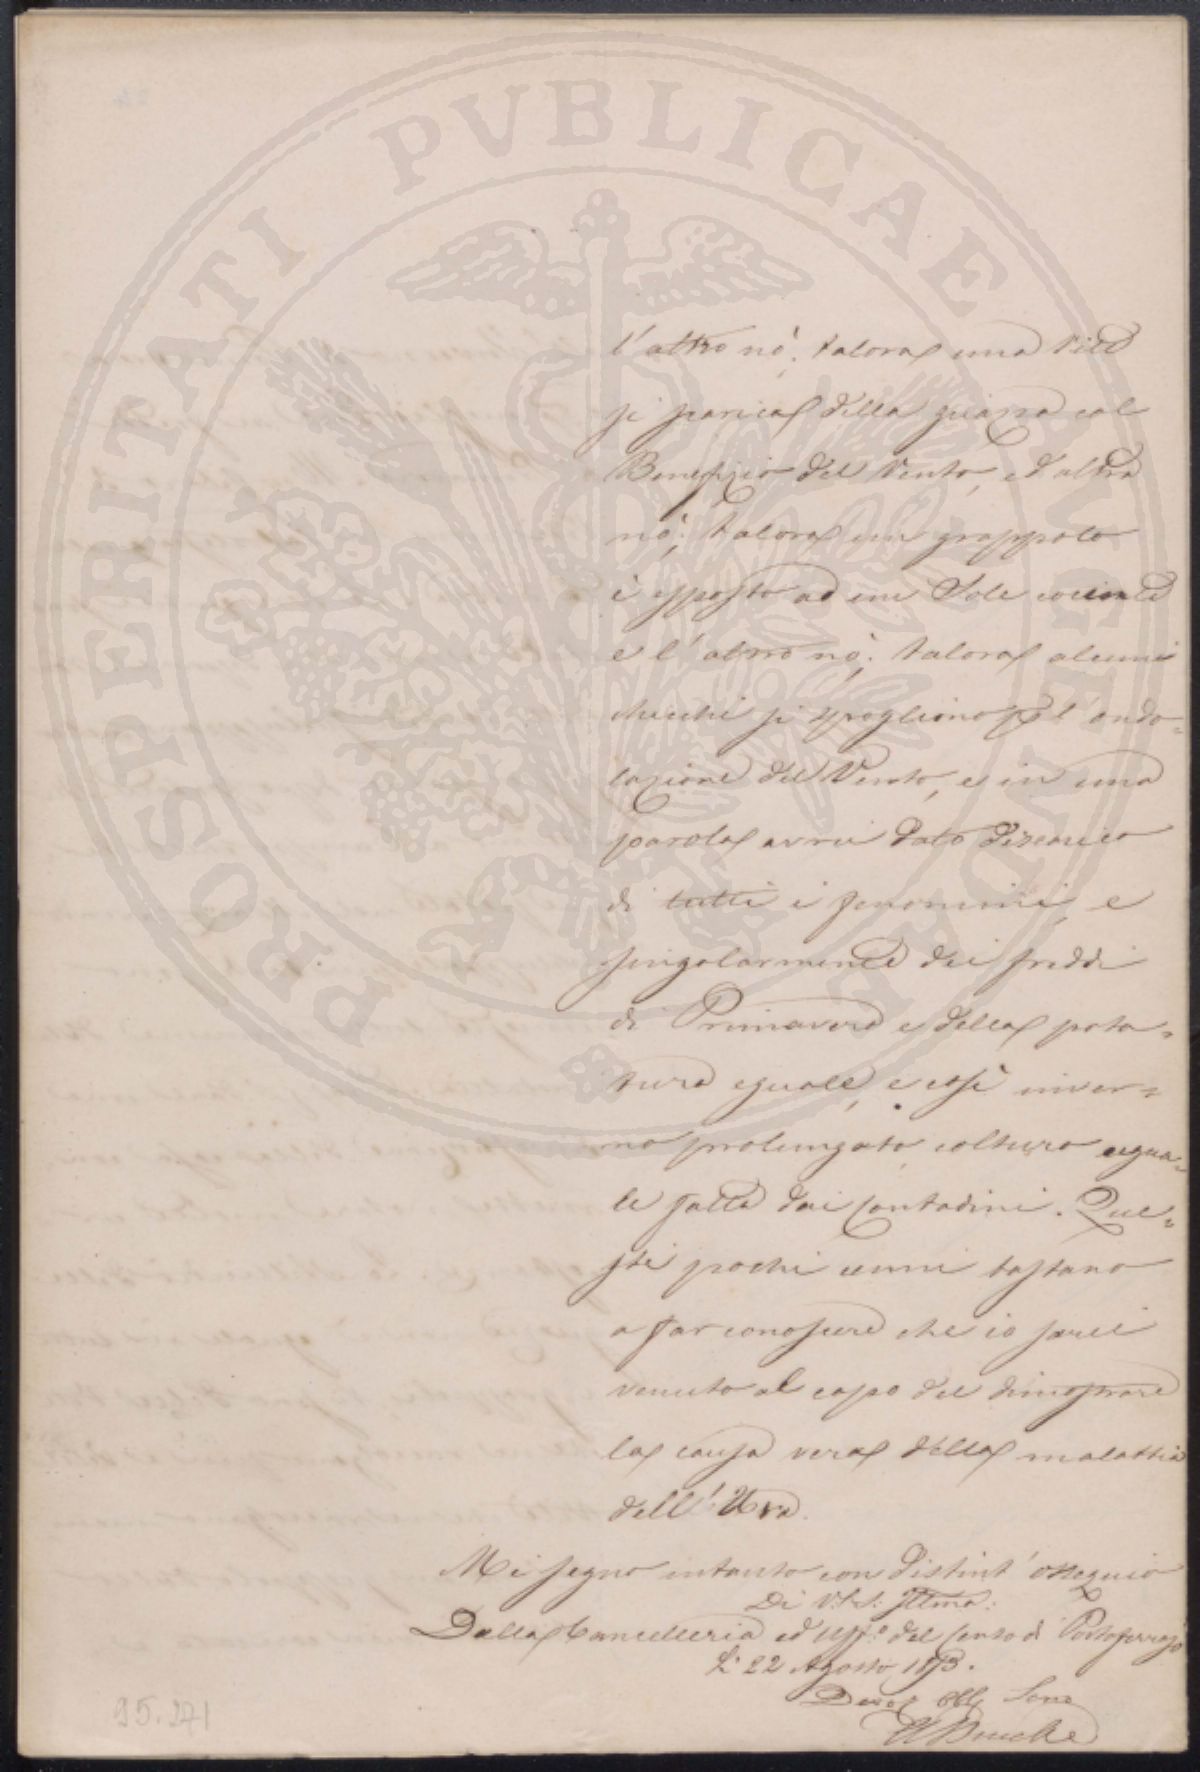 PROSPERITATI PVBLICAE AVGENDAE
l'altro nò; talora una Vite
si scarica della guazza col
Benefizio del Vento, ed altra
nò; talora un grappolo
è esposto ad un Sole cocente
e l'altro nò; talora alcuni
chicchi si spogliono
lazione del Vento, e in una
parola avrei dato discarico
di tutti i fenomini, e
singolarmente dei freddi
di Primavera e della pota=
tura eguale, e così inver=
no prolungato coltura egua=
le fatta dai Contadini. Que=
sti pochi cenni bastano
a far conoscere che io sarei
venuto al capo del dimostrare
la causa vera della malattia
dell'Uva.
Mi segno intanto con distint'ossequio
Di V.S. Illma:
Dalla Cancelleria ed Uff.o del Censo di Portoferrajo
Li 22 Agosto 1853.
Devot Obb Serv
95.271